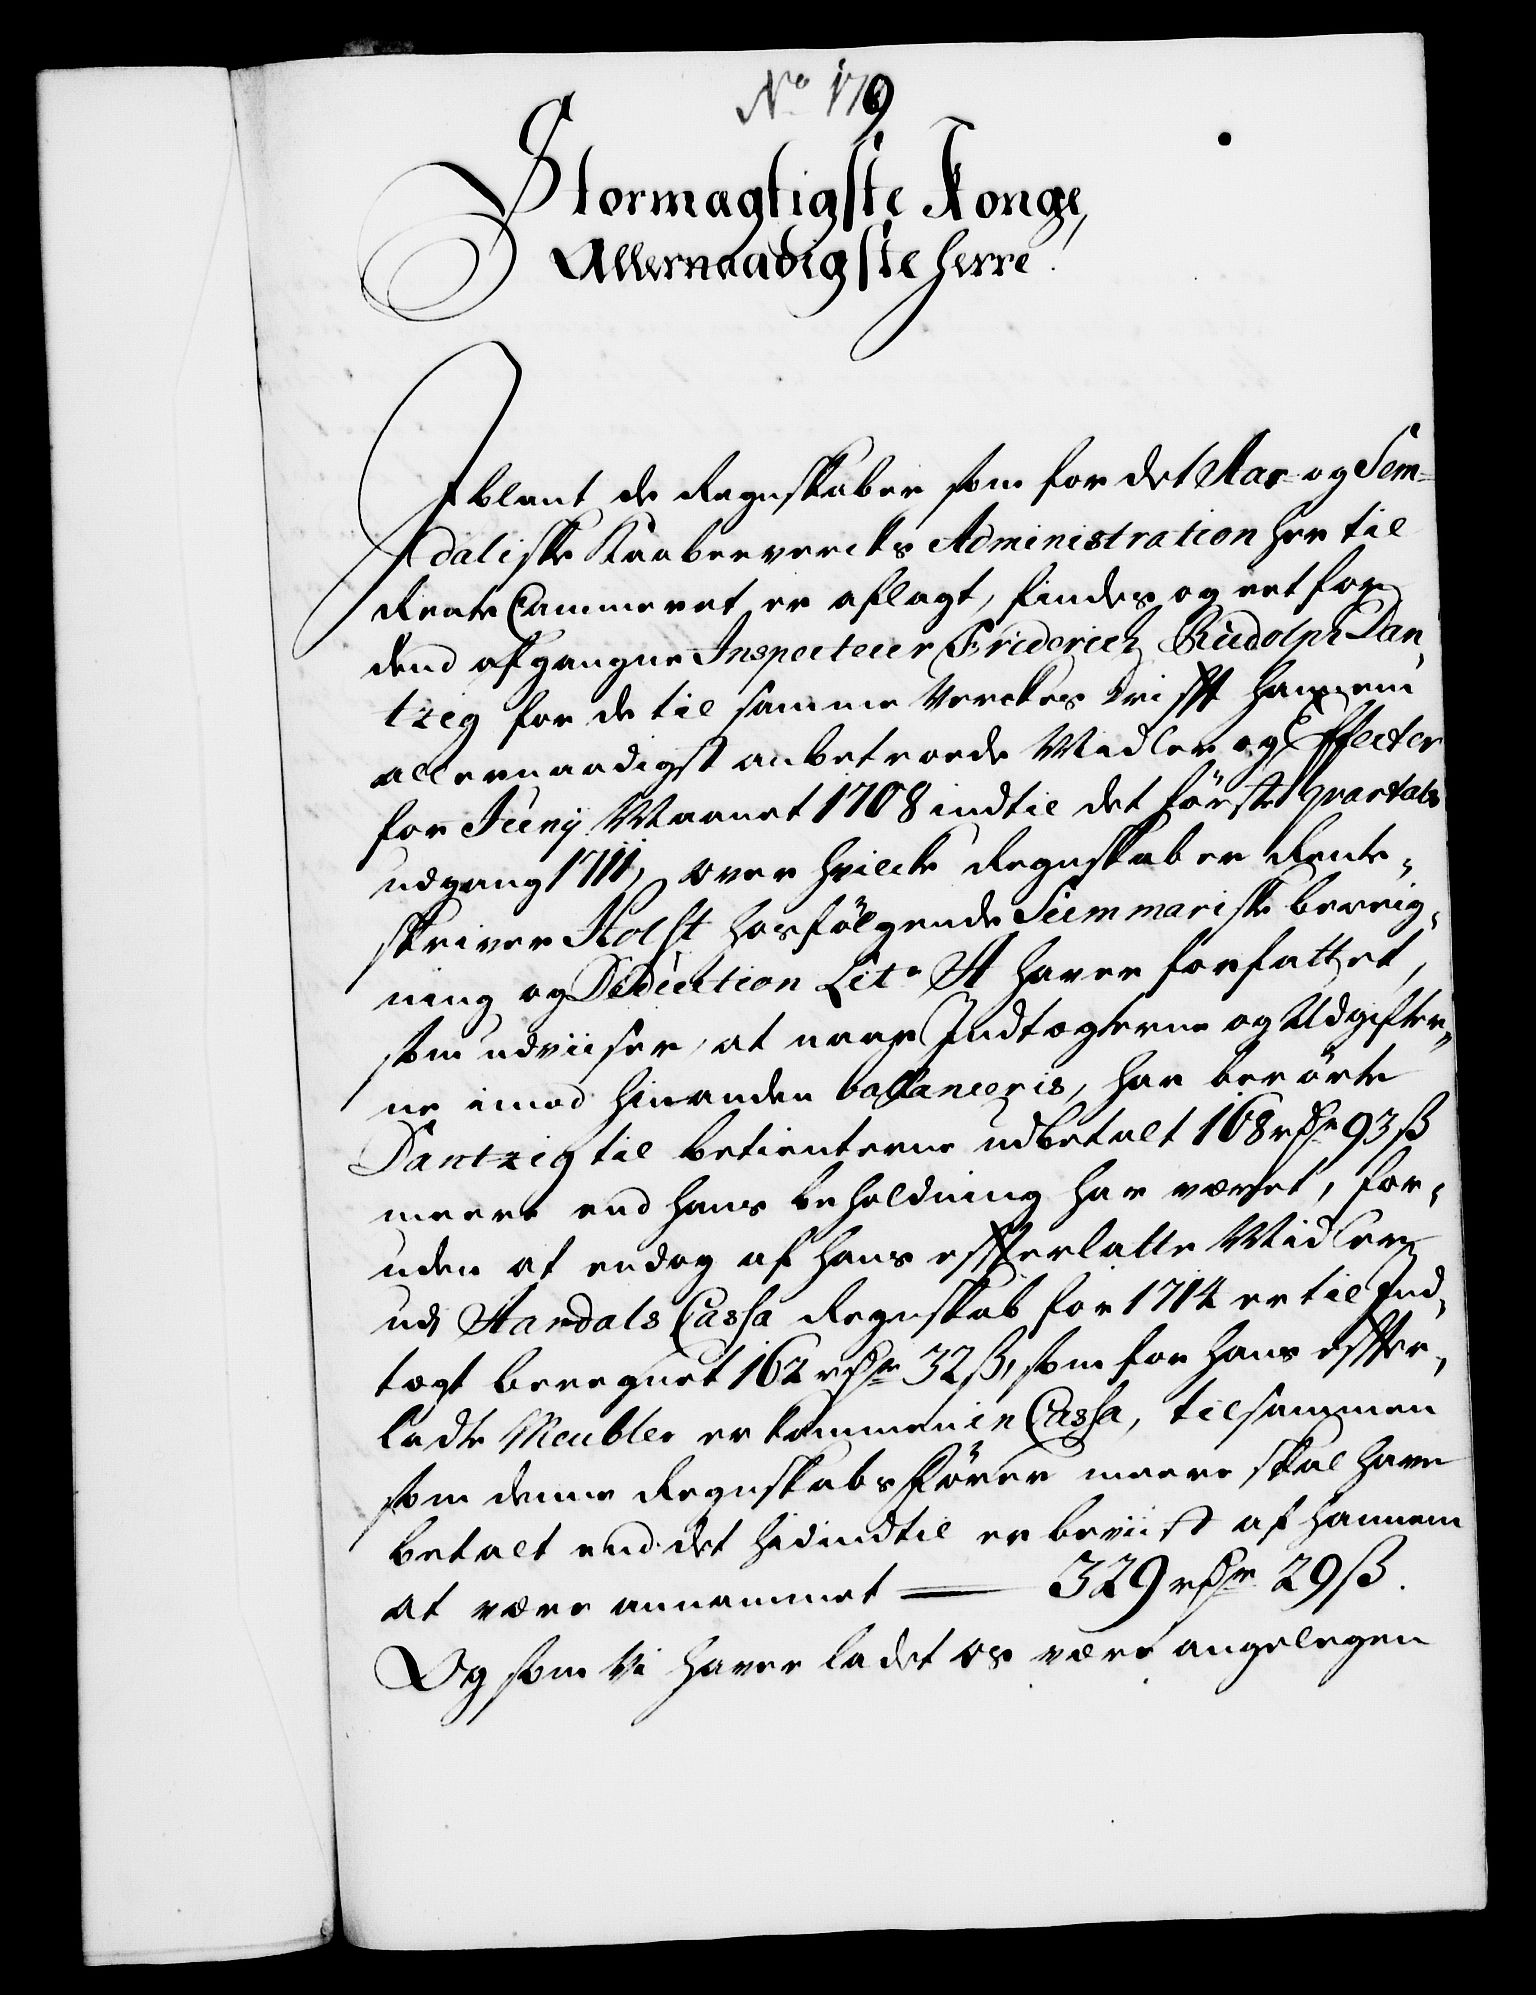 No 179
Stormagtigste Konge,
Allernaadigste Herre!
Iblant de Regnskaber som for det Aar- og Sem-
daliske Kaaberverks Administration her til
Rente Cammeret er aflagt, findes og eet for
dend afgangne Inspecteur Friderich Rudolph Dan,
tzig for de til samme Verckes Drifft hannem
allernaadigst anbetroede Midler og Effecter
for Junij Maanet 1708 indtil det förste qvartals
udgang 1711, over hvilcke Regnskaber Rente,
skriver Holst hosfölgende Summariske bereig,
ning og Deduction Lit. A haver forfattet,
som udviiser, at naar Indtægterne og Udgifter,
ne imod hinanden ballanceris, har berörte
Dantzig til betienterne udbetalt 168 rdr 93 ß
meere end hans beholdning har været, for,
uden at endog af hans effterlatte Midler
udj Aardals Cassa Regnskab for 1714 er til Ind,
tægt beregnet 162 rdr 32 ß, som for hans effter,
ladte Meubler er kommen in Cassa, tilsammen
som denne Regnskabsförer meere skal have
betalt end det hidindtil er beviist af hannem
at være annammet — 329 rdr 29 ß.
Og som Vi haver ladet os være angelegen